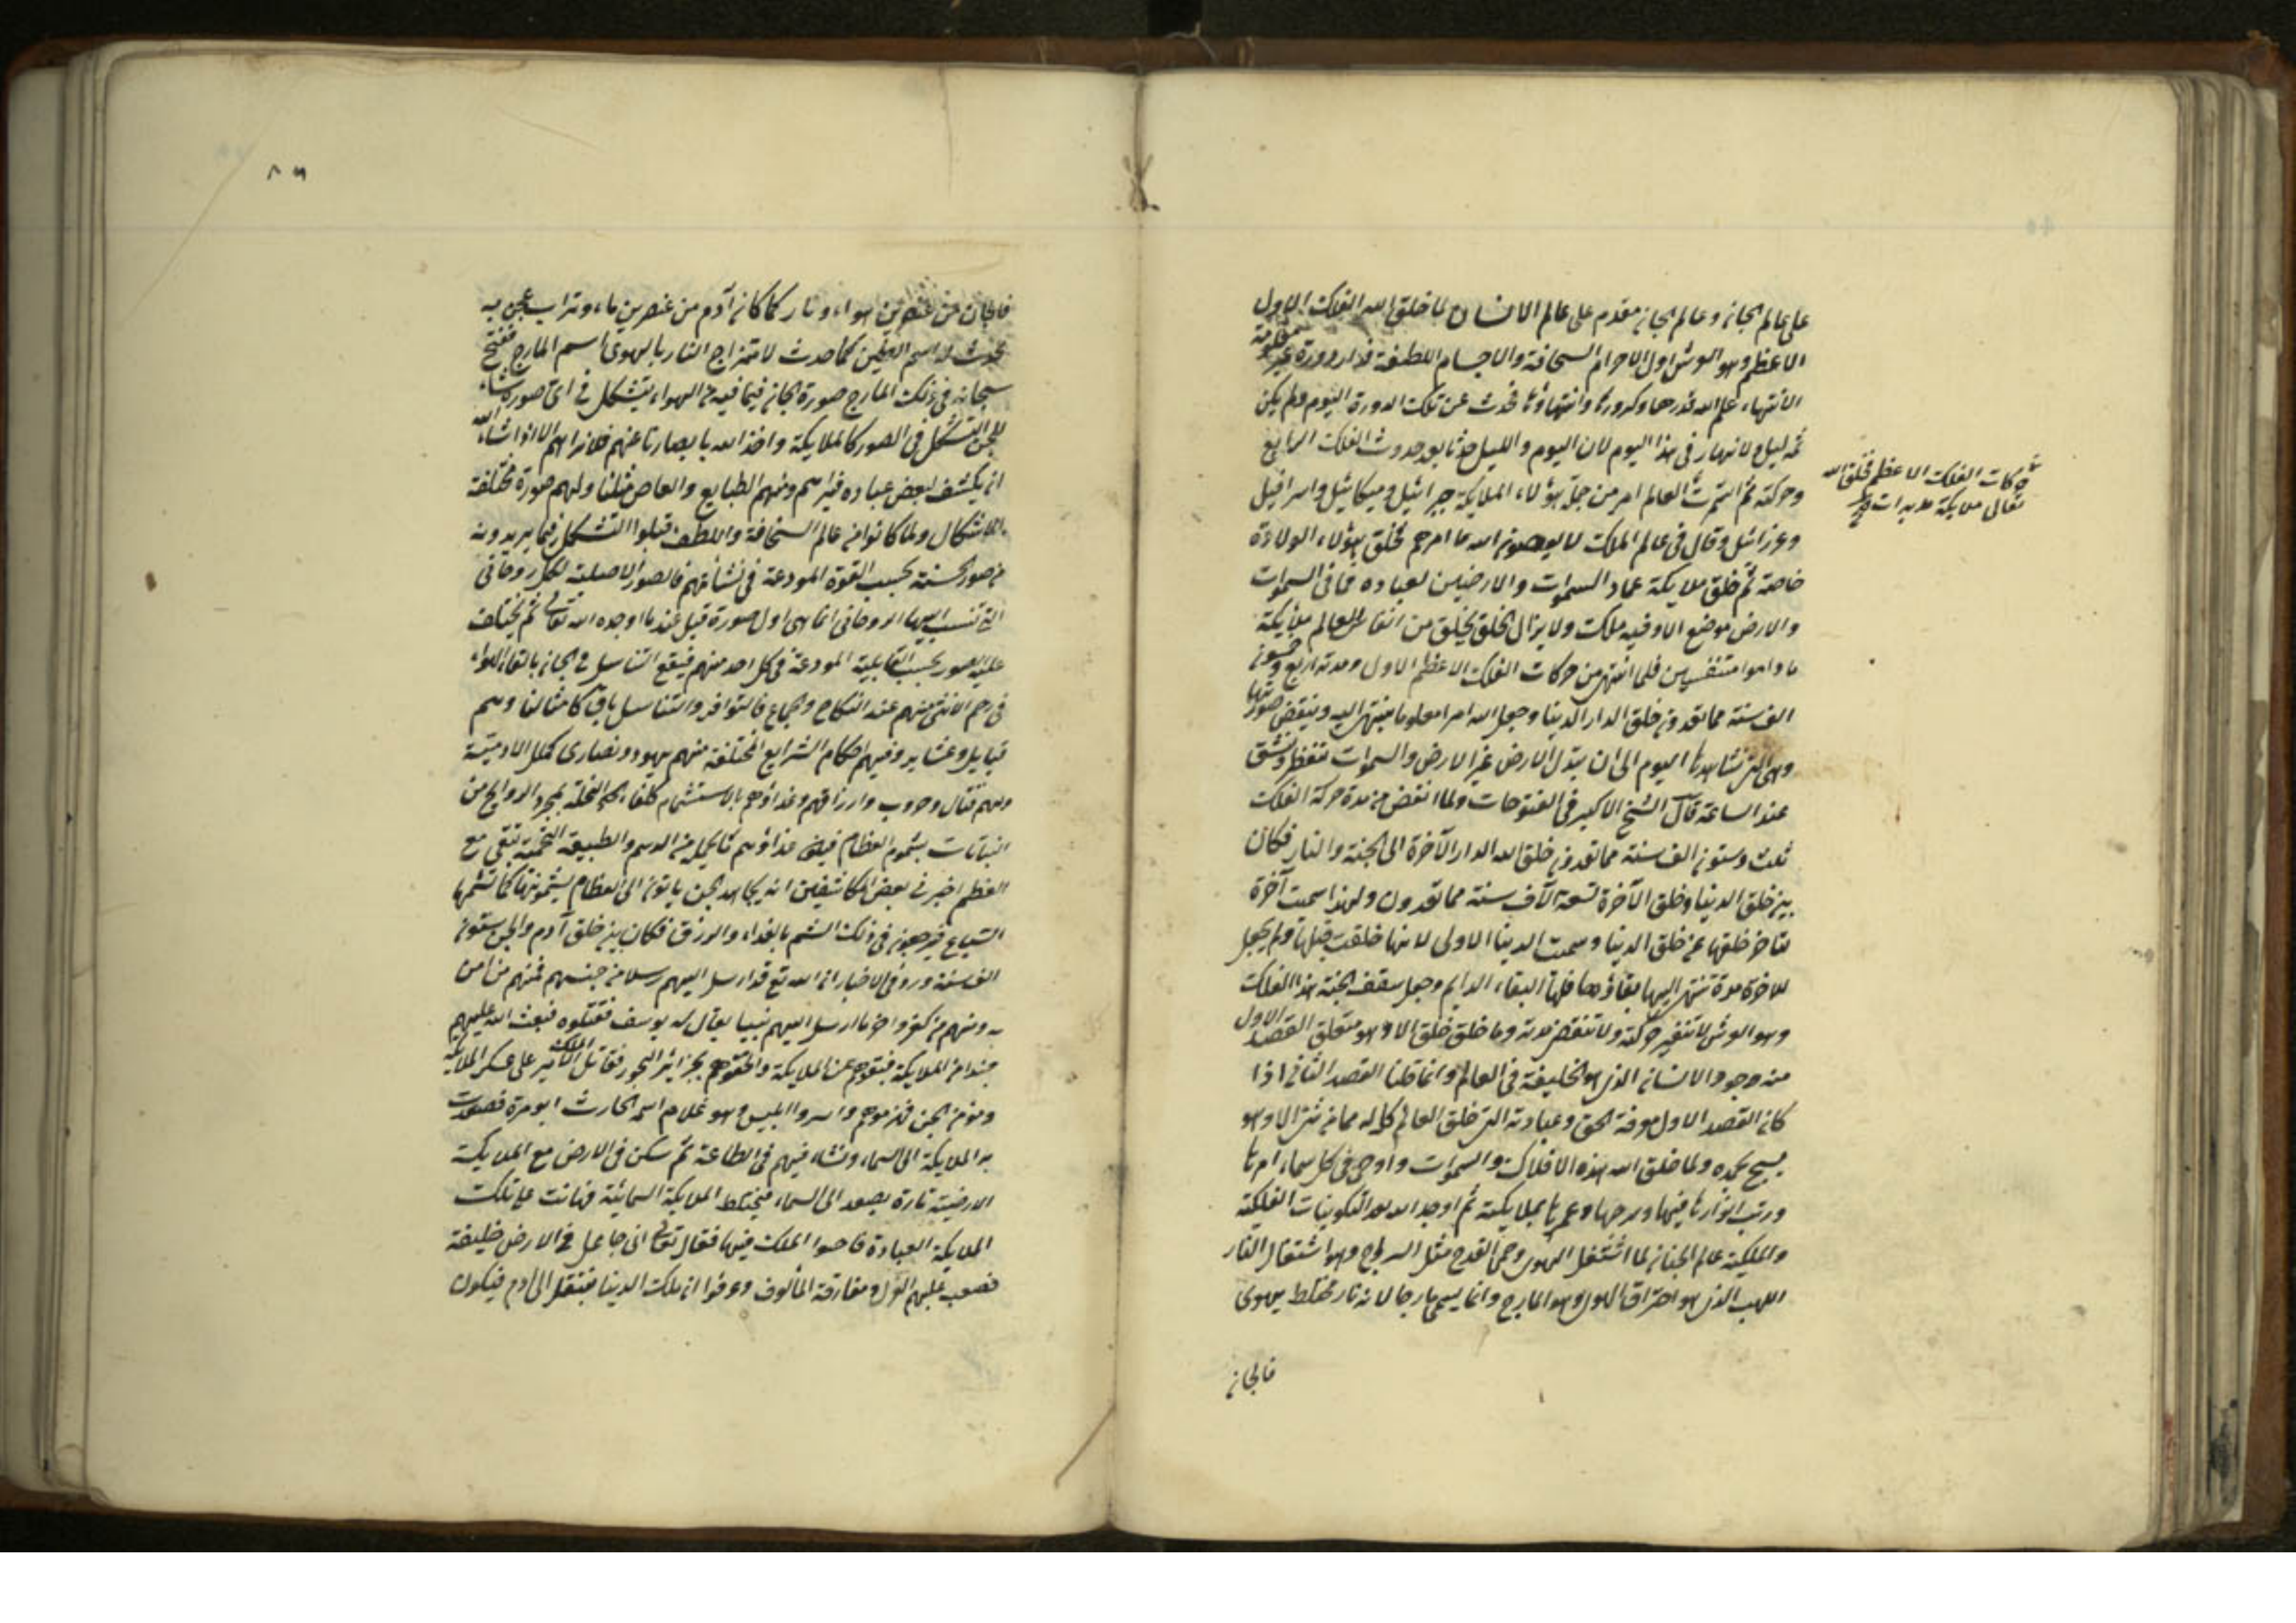 على عالم الجان وعالم الجان مقدم على عالم الانسان لما خلق الله الفلك الاول
الاعظم وهو العرش اول الاجرام السخافة والاجسام اللطيفة فدار دورة غير معلومة
الانتهاء علم الله قدرها وكرورها وانتهاؤها فحدث عن تلك الدورة اليوم ولم يكن
ثمه ليل ولا نهار في هذا اليوم لان اليوم والليل حدثا بعد حدوث الفلك الرابع
وحركته ثم العالم امر من جملة هؤلاء الملايكة جبرائيل وميكائيل واسرافيل
وعزرائيل وقال في عالم الملك لا يعصون الله ما امرهم فخلق هؤلاء الولادة
خاصة ثم خلق ملايكة عمار السموات والارضين لعباده فما في السموات
والارض موضع الا وفيه ملك ولا يزال الخلق يخلق من انفاس العالم ملايكة
ما داموا متنفسين فلما انتهى من حركات الفلك الاعظم الاول ومدته اربع وخمسون
الف سنة مما تعدون خلق الدار الدنيا وجعل الله امرا معلوما ينتهى اليه وينقضي صورتها
وهي التي نشاهدها اليوم الى ان تبدل الارض غير الارض والسموات تنفطر وتنشق
عند الساعة قال الشيخ الاكبر في الفتوحات ولما انقضى من مدة حركة الفلك
ثلث وستون الف سنة مما تعدون خلق الله الدار الآخرة الى الجنة والنار فكان
بين خلق الدنيا وخلق الآخرة تسعة آلاف سنة مما تعدون ولهذا سميت آخرة
لتاخر خلقها عن خلق الدنيا وسميت الدنيا الاولى لانها خلقت قبلها ولم يجعل
للاخرة مدة تنتهي اليها بقاؤها فلها البقاء الدايم وجعل سقف الجنة هذا الفلك
وهو العرش لا تتغير حركته ولا تنقص مدته وما خلق خلق الا وهو متعلق القصد الاول
منه وجود الانسان الذي هو الخليفة في العالم وانما قلنا القصد الثاني اذا
كان القصد الاول معرفة الحق وعبادته التي خلق العالم كله له فما من شئ الا وهو
يسبح بحمده ولما خلق الله هذه الافلاك والسموات واوحى في كل سماء امرها
ورتب انوارها فيها وسرجها وعمرها بملايكته ثم اوجد الله بعد التكوينات الفلكية
والملكية عالم الجنان لما اشتعل الهوى وحمى القدح مثل السراج وهو اشتعال النار
اللهب الذي هو احتراق الهوى وهو المارج وانما يسمى مارجا لانه نار مختلط بهوى
فالجان
حركات الفلك الاعظم فخلق الله
تعالى ملايكة مدبرات
٨٦
فالجان من عنصرين هواء ونار كما كان آدم من عنصرين ماء وتراب عجن به
فحدث له اسم الطين كما حدث لامتزاج النار بالهوى اسم المارج ففتح
سبحانه في ذلك المارج صورة الجان فيما فيه من الهواء يتشكل في اي صورة شاء
للجن التشكل في الصور كالملايكة واخذ الله بابصارنا عنهم فلا نراهم الا اذا شاء الله
ان يكشف لبعض عباده فيراهم ومنهم الطايع والعاص مثلنا ولهم صورة مختلفة
الاشكال ولما كانوا من عالم السخافة واللطف قبلوا التشكل فيما يريدونه
من صور الحسنة بحسب القوة المودعة في نشأتهم فالصورة الاصلية لكل روحاني
التي تنسب اليها الروحاني انما هي اول صورة قبل عند ما اوجده الله تعالى ثم يختلف
عليه الصور بحسب القابلية المودعة في كل احد منهم فيقع التناسل في الجان بالقاء الهواء
في رحم الانثى منهم عند النكاح والجماع فالتوافر والتناسل باق كامثالنا وهم
قبايل وعشاير وفيهم احكام الشرايع المختلفة منهم يهود ونصارى كملل الادمية
ولهم قتال وحروب وارزاقهم وغذاؤهم بالاستشمام بمجرد الروايح من
النباتات بشموم العظام غذاؤهم من الدسم والطبيعة تبقى مع
العظم اخبر في بعض المكاشفين انه الجن ياتون الى العظام يشمونها كما تشمها
السباع فيرجعون في ذلك الشم بالغداء والرزق فكان بين خلق آدم والجن ستون
الف سنة ورد في الاخبار ان الله تع قد ارسل اليهم رسلا من جنسهم فمنهم من امن
به ومنهم من كفر واخر ما ارسل اليهم نبيا يقال له يوسف فقتلوه فبعث الله عليهم
جندا من الملايكة بجزاير البحور فقاتل على عسكر الملايكة
ومؤمن الجن فهزموهم واسروا ابليس وهو غلام اسمه الحارث ابو مرة فصعدت
به الملايكة الى السماء ونشاء فيهم في الطاعة ثم سكن في الارض مع الملايكة
الارضية تارة يصعد الى السماء فيختلط الملايكة السمائية على تلك
الملايكة العبادة الملك فيها فقال تعالى اني جاعل في الارض خليفة
فصعب عليهم العزل ومفارقة المألوف وعرفوا ان ملك الدنيا ينتقل الى آدم فيكون